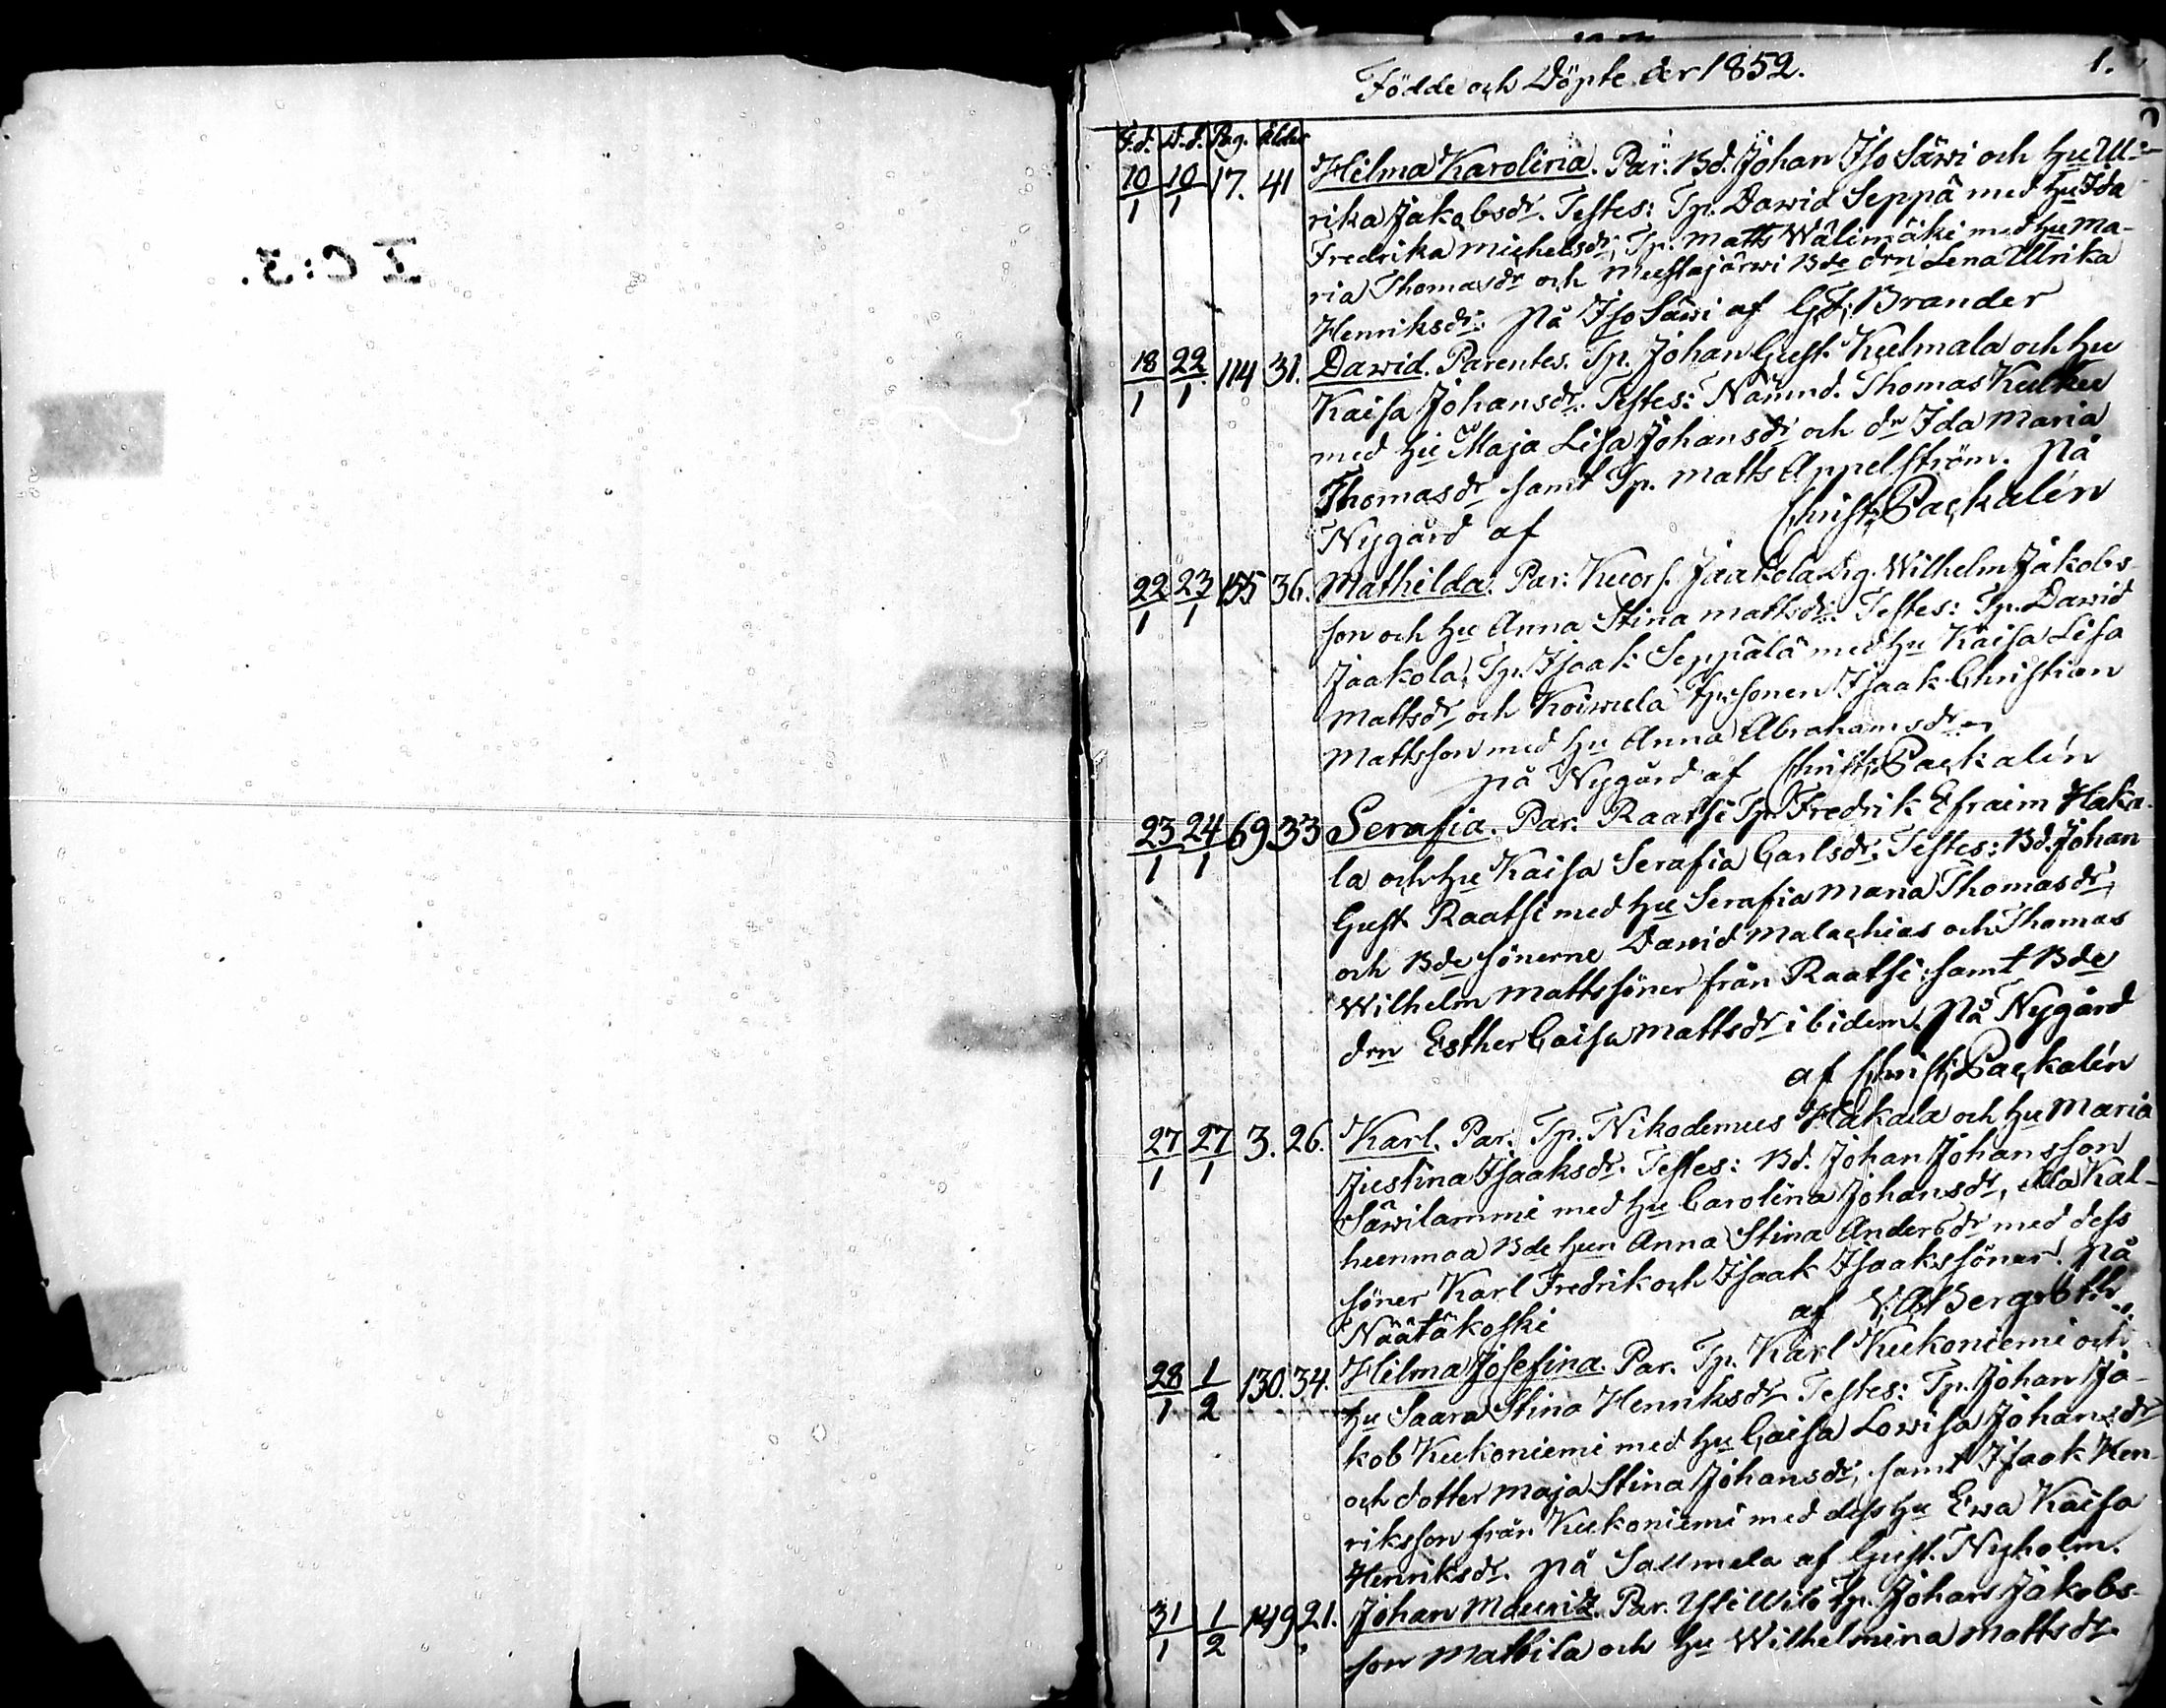 I C:3.
Födde och Döpte år 1852. 1.
F.d. D.d. Pag. Ålder
10/1 10/1 17. 41 Hilma Karolina. Par: Bd. Johan Iso Säwi och hu Ul-
rika Jakobsdr. Testes: Tp. Dawid Seppä med hu Ida
Fredrika Michelsdr, Tp. Matts Wälimäki med hu Ma-
ria Thomasdr och Mustajärwi Bde drn Lena Ulrika
Henriksdr: på Iso Säwi af G.F. Brander
18/1 22/1 114 31. Dawid. Parentes. Tp. Johan Gust. Kulmala och hu
Kaisa Johansdr. Testes: Nämnd. Thomas Kulku
med hu Maja Lisa Johansdr och dr Ida Maria
Thomasdr samt Tp. Matts Appelström. på
Nygård af Christ: Packalén
22/1 23/1 155 36. Mathilda. Par: Kuors. Jaakola Drg. Wilhelm Jakobs-
son och hu Anna Stina Mattsdr: Testes: Tp. Dawid
Jaakola, Tp. Isaak Seppälä med hu Kaisa Lisa
Mattsdr och Koiwula Tp. sonen Isaak Christian
Mattsson med hu Anna Abrahamsdr
på Nygård af Christ: Packalén
23/1 24/1 69. 33 Serafia. Par: Raatsi Tp. Fredrik Efraim Haka-
la och hu Kaisa Serafia Carlsdr. Testes: Bd. Johan
Gust Raatsi med hu Serafia Maria Thomasdr,
och Bde sönerne Dawid Malachias och Thomas
Wilhelm Mattssöner från Raatsi samt Bde
drn Esther Caisa Mattsdr ibidem. på Nygård
af Christ: Packalén
27/1 27/1 3. 26. Karl. Par: Tp. Nikodemus Hakala och hu Maria
Justina Isaaksdr. Testes: Bd. Johan Johansson
Säwilammi med hu Carolina Johansdr, Ala Kal-
huenmaa Bde hun Anna Stina Andersdr med dess
söner Karl Fredrik och Isaak Isaakssöner. på
Näätäkoski af Bergroth
28/1 1/2 130. 34. Hilma Josefina. Par. Tp. Karl Kukoniemi och
hu Saara Stina Henriksdr. Testes: Tp. Johan Ja-
kob Kukoniemi med hu Caisa Lowisa Johansdr
och dotter Maja Stina Johansdr, samt Isaak Hen-
riksson från Kukoniemi med dess hu Ewa Kaisa
Henriksdr. på Salmela af Gust. Nyholm.
31/1 1/2 149 21. Johan Mauritz. Par. Tp. Johan Jakobs-
son Mattila och hu Wilhelmina Mattsdr